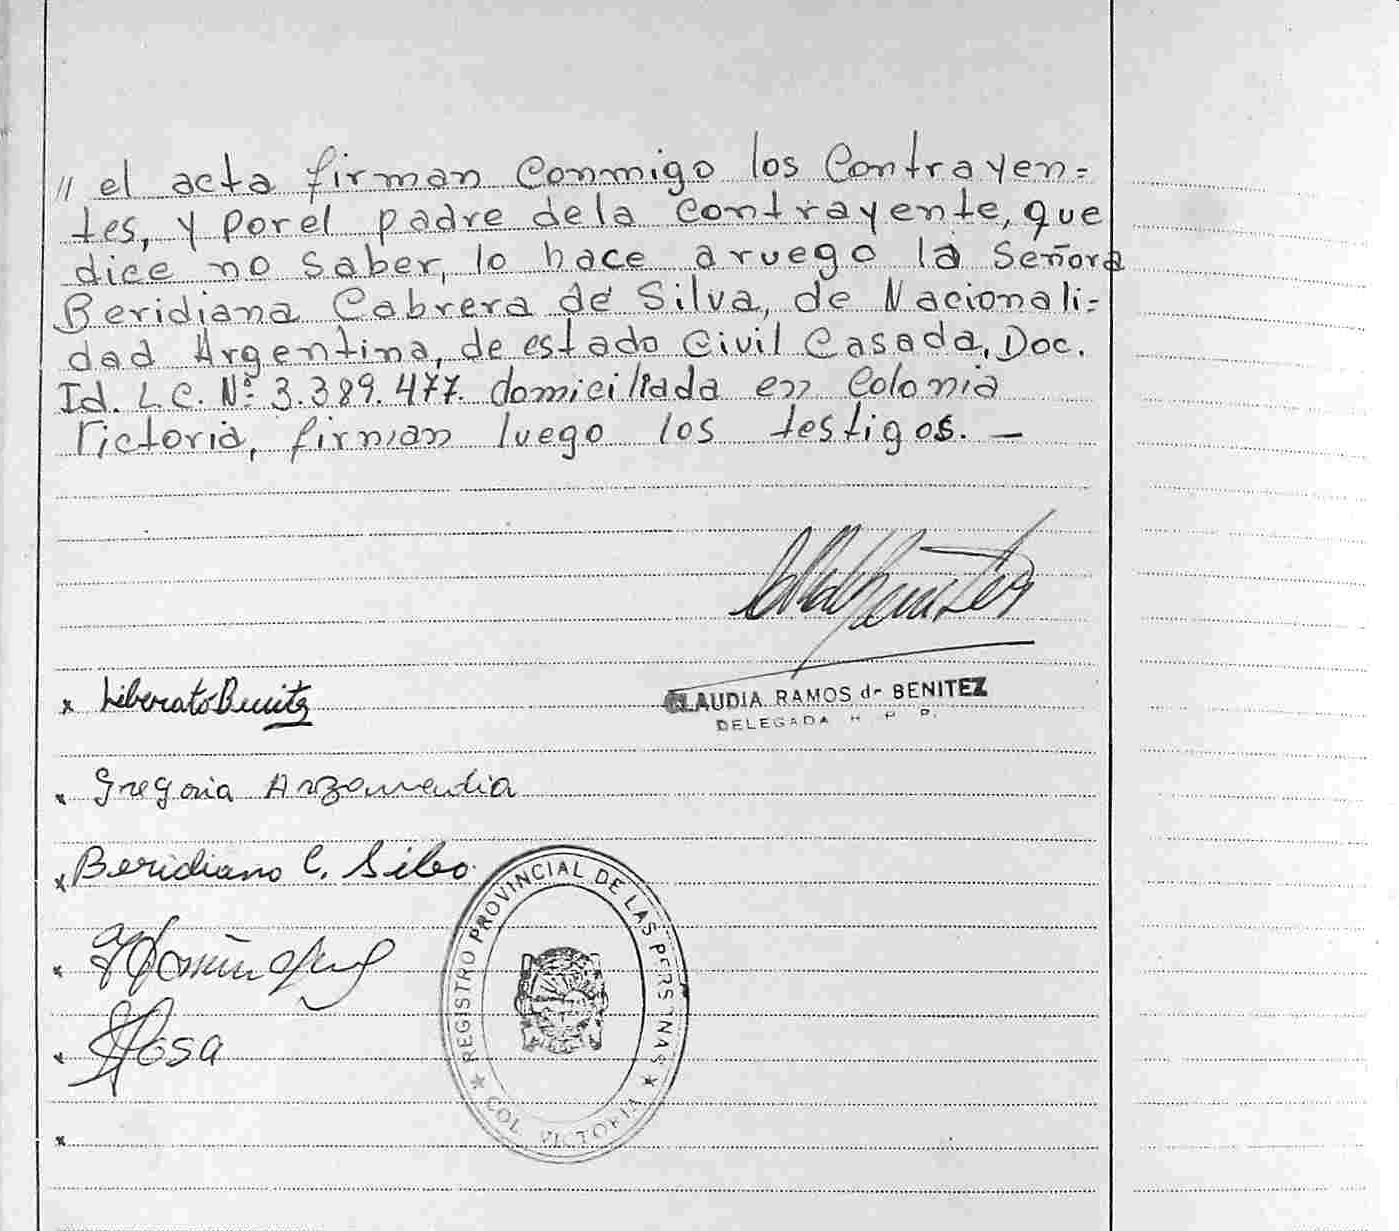 // el acta firman Conmigo los Contrayen=
tes, y por el padre de la Contrayente, que
dice no saber, lo hace a ruego la Señora
Beridiana Cabrera de Silva, de Nacionali=
dad Argentina, de estado Civil Casada, Doc.
Id. L.C. Nº 3.389.477. domiciliada en Colonia
Victoria, firman luego los testigos. —
x Liberato Benitz
CLAUDIA RAMOS de BENITEZ
DELEGADA R P P.
x Gregoria Arzamendia
x Beridiana C. Silva
REGISTRO PROVINCIAL DE LAS PERSONAS
COL. VICTORIA
x
x Rosa
x